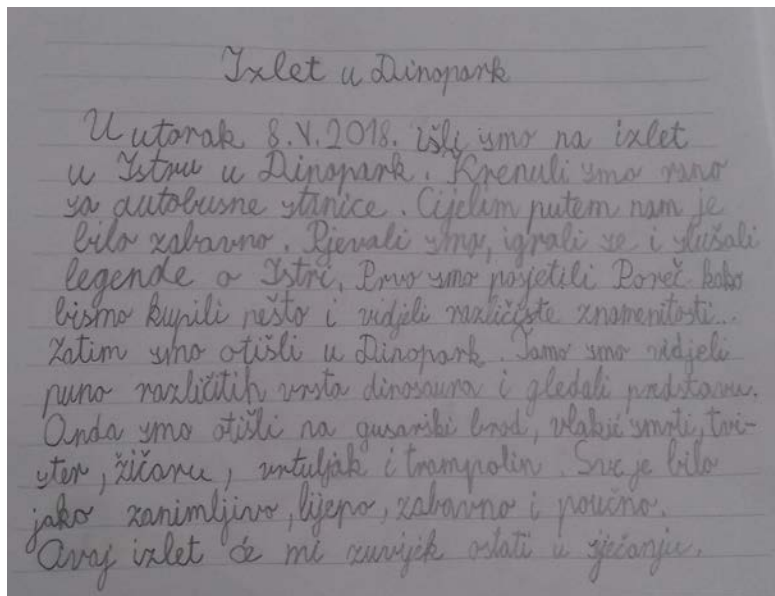 Izlet u Dinopark
U utorak 8.V.2018. išli smo na izlet
u Istru u Dinopark. Krenuli smo rano
sa autobusne stanice. Cijelim putem nam je
bilo zabavno. Pjevali smo, igrali se i slušali
legende o Istri. Prvo smo posjetili Poreč kako
bismo kupili nešto i vidjeli različite znamenitosti...
Zatim smo otišli u Dinopark. Tamo smo vidjeli
puno različitih vrsta dinosaura i gledali predstavu.
Onda smo otišli na gusarski brod, vlakić smrti, tvi-
ster, žičaru, vrtuljak i trampolin. Sve je bilo
jako zanimljivo, lijepo, zabavno i poučno.
Ovaj izlet će mi zuvijek ostati u sjećanju.